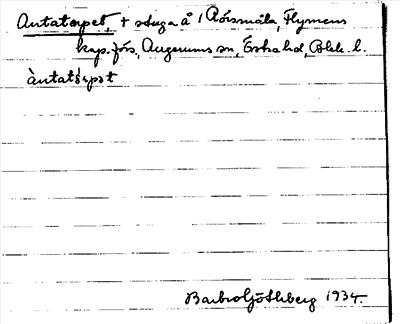 Antatorpet, + stuga å 1 Rörsmåla, Flymens
kap.förs, Augerums sn, Östra hd, Blek. l.
àntatårpət
Barbro Göthberg 1934.